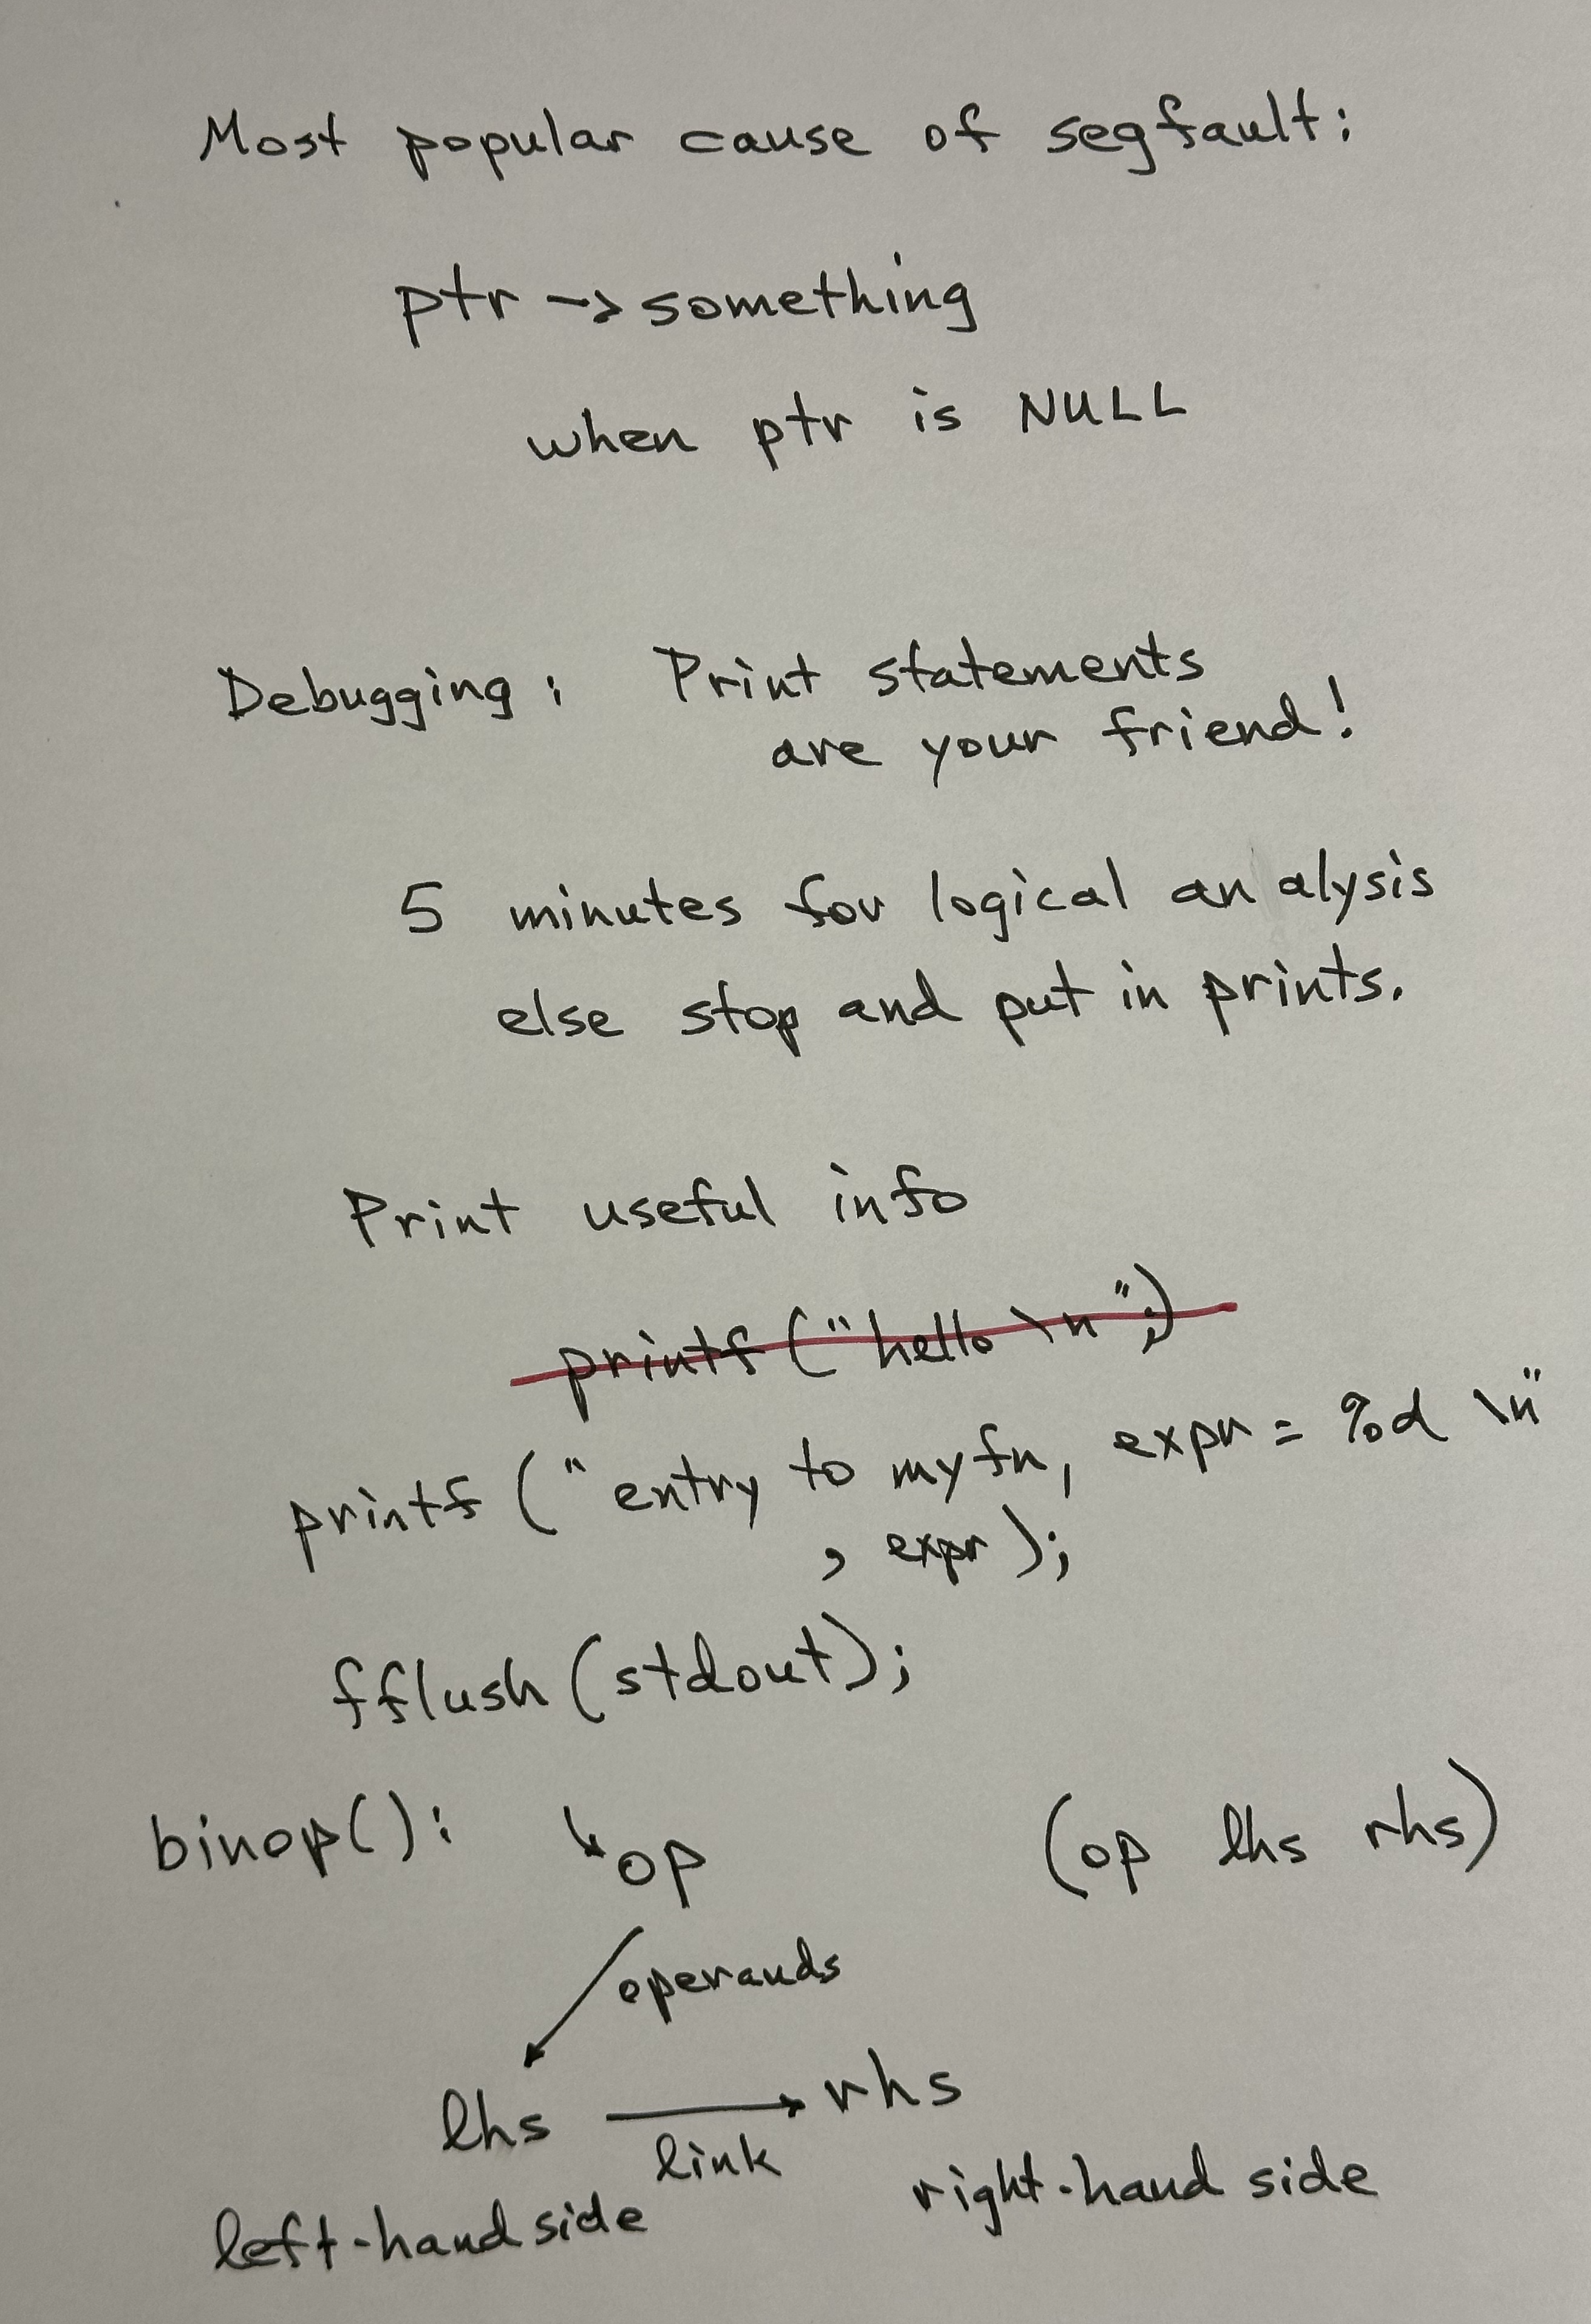 Most popular cause of segfault:
ptr -> something
when ptr is NULL
Debugging: Print statements
are your friend!
5 minutes for logical an alysis
else stop and put in prints.
Print useful info
printf ("hello \n";)
printf ("entry to myfn, expr = %d \n"
, expr);
fflush (stdout);
binop(): ↘op (op lhs rhs)
operands
lhs → rhs
link
left-hand side right-hand side